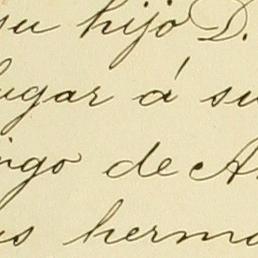 su hijo D.
lugar á su
ingo de A
us herma